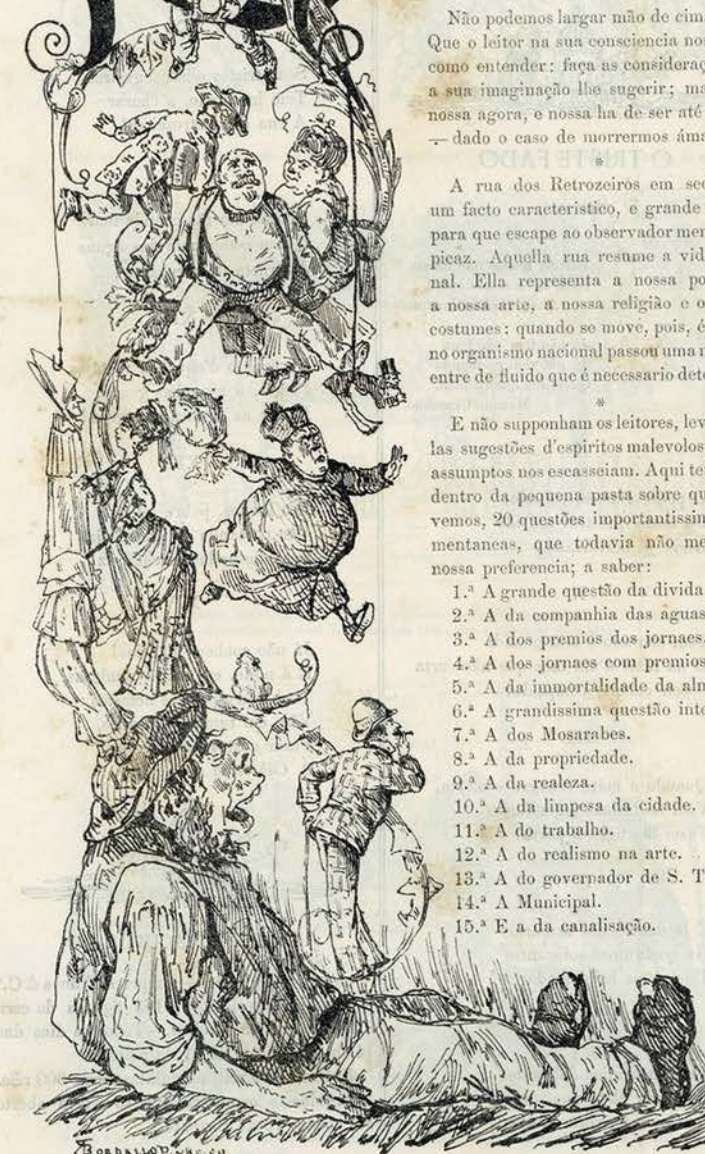 Não podemos largar mão de cim
Que o leitor na sua consciencia no
como entender: faça as consideraç
a sua imaginação lhe sugerir; ma
nossa agora, e nossa ha de ser até
— dado o caso de morrermos áma
*
A rua dos Retrozeiros em sec
um facto caracteristico, e grande
para que escape ao observador men
picaz. Aquella rua resume a vid
nal. Ella representa a nossa po
a nossa arte, a nossa religião e o
costumes: quando se move, pois, é
no organismo nacional passou uma
entre de fluido que é necessario dete
*
E não supponham os leitores, lev
las sugestões d'espiritos malevolos
assumptos nos escasseiam. Aqui te
dentro da pequena pasta sobre qu
vemos, 20 questões importantissim
mentaneas, que todavia não me
nossa preferencia; a saber:
1.ª A grande questão da divida
2.ª A da companhia das aguas
3.ª A dos premios dos jornaes.
4.ª A dos jornaes com premios
5.ª A da immortalidade da alm
6.ª A grandissima questão inte
7.ª A dos Mosarabes.
8.ª A da propriedade.
9.ª A da realeza.
10.ª A da limpesa da cidade.
11.ª A do trabalho.
12.ª A do realismo na arte.
13.ª A do governador de S. T
14.ª A Municipal.
15.ª E a da canalisação.